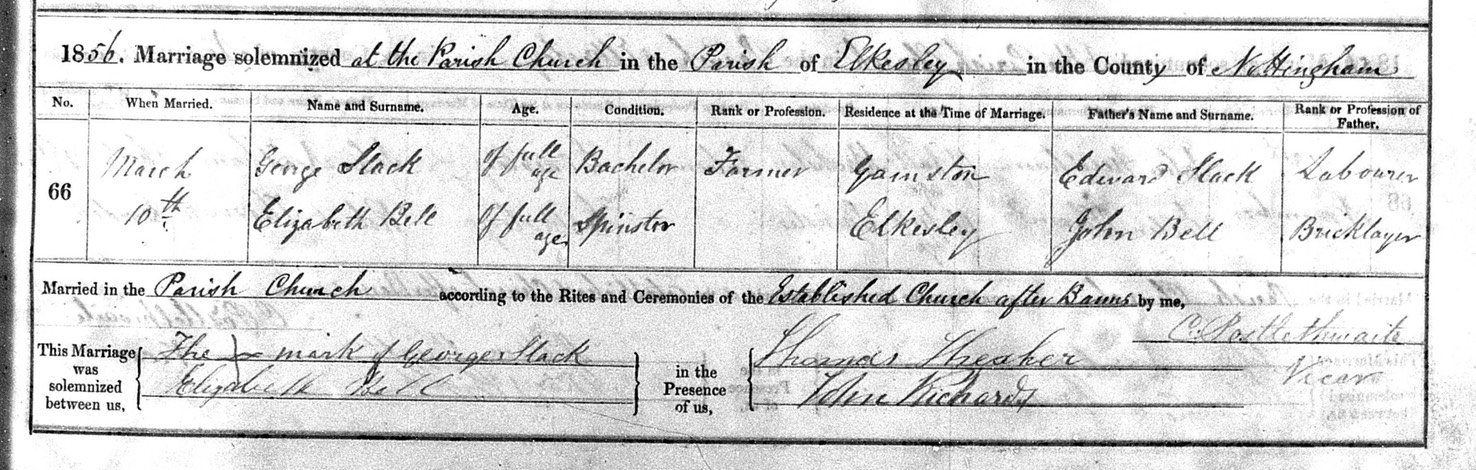 1856. Marriage solemnized at the Parish Church in the Parish of Elkesley in the County of Nottingham
No. When Married. Name and Surname. Age. Condition. Rank or Profession. Residence at the Time of Marriage. Father's Name and Surname. Rank or Profession of Father.
66 March 10th. George Slack of full age Bachelor Farmer Gamston Edward Slack Labourer
Elizabeth Bell of full age Spinster Elkesley John Bell Bricklayer
Married in the Parish Church according to the Rites and Ceremonies of the Established Church after Banns by me,
C. Postlethwaite
Vicar
This Marriage was solemnized between us, The x mark of George Slack
Elizabeth Bell
in the Presence of us, Thomas Theaker
John Richards